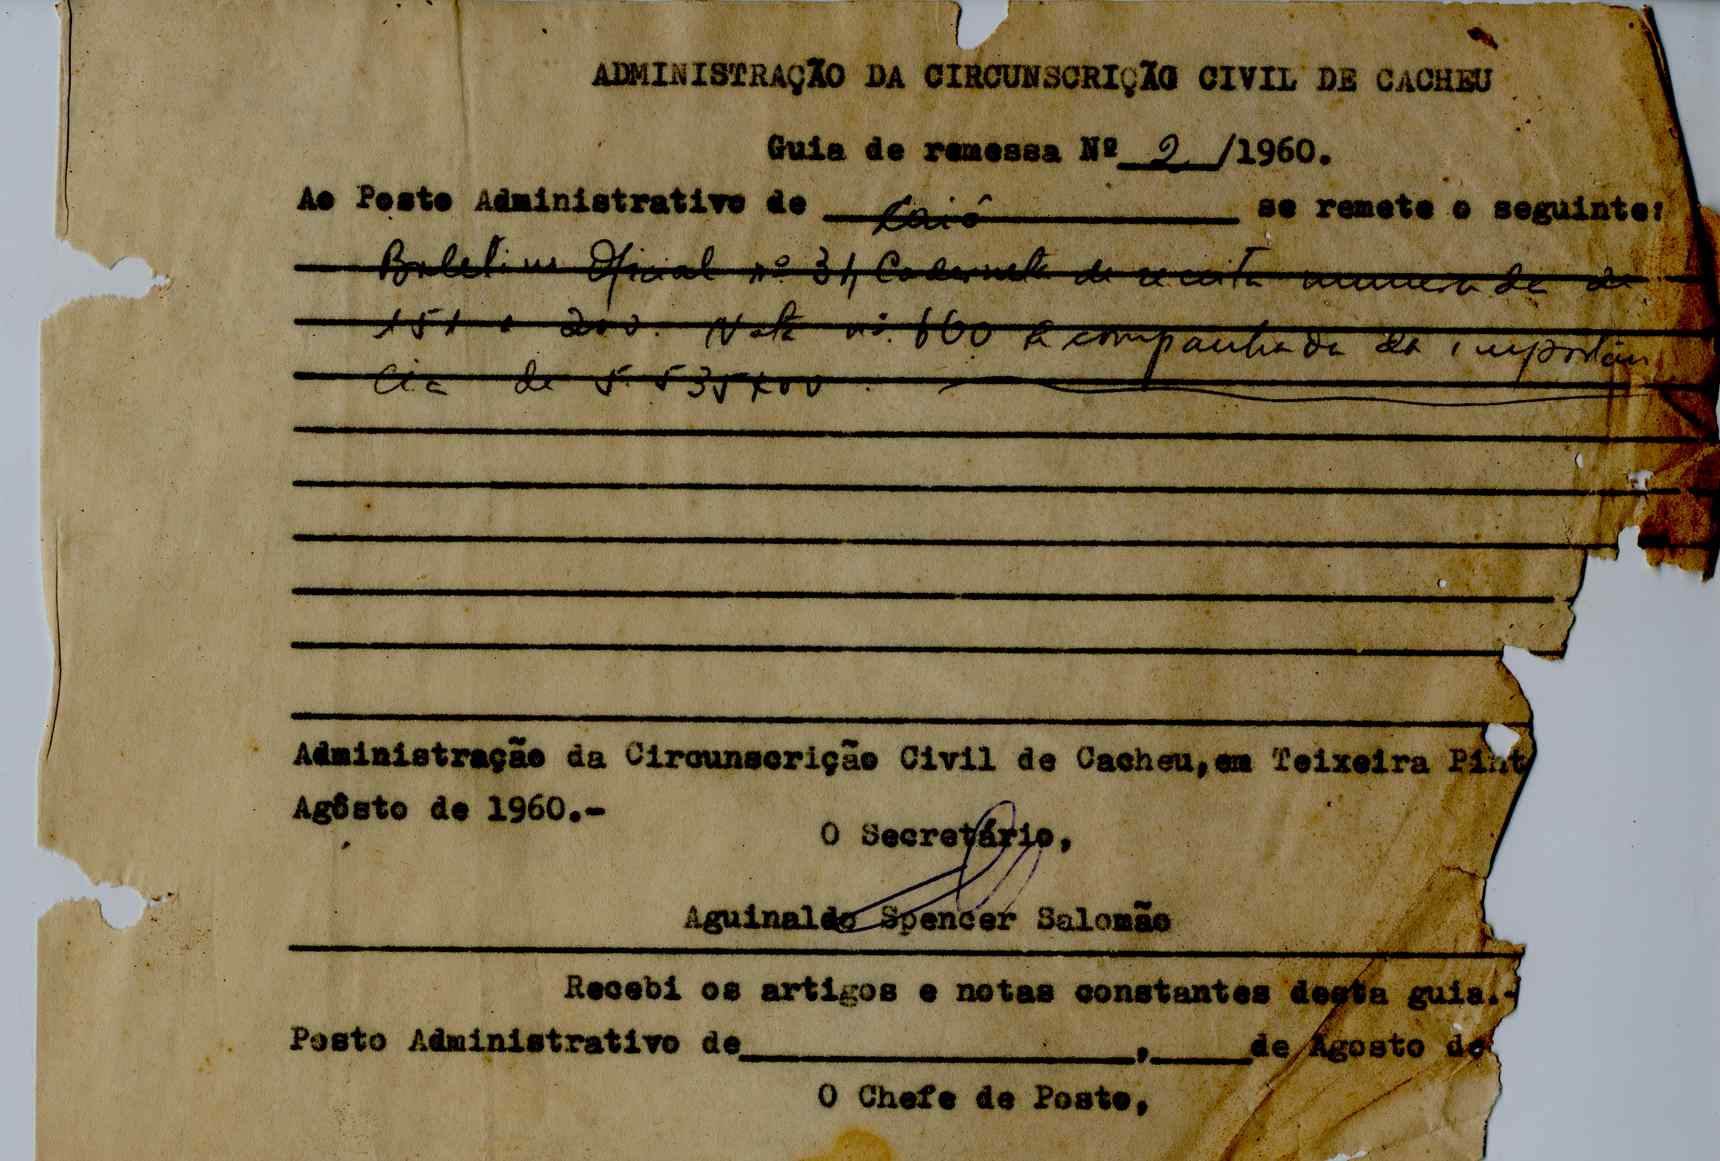 ADMINISTRAÇÃO DA CIRCUNSCRIÇÃO CIVIL DE CACHEU
Guia de remessa Nº 2 /1960.
Ao Posto Administrativo de Caió se remete o seguinte:
Boletim Oficial nº 31, Caderneta de receita numerada de
151 a 200. Nota nº. 600 acompanhada da importân
cia de 5.535$00.
Administração da Circunscrição Civil de Cacheu,em Teixeira Pint
Agôsto de 1960.-
O Secretário,
Aguinaldo Spencer Salomão
Recebi os artigos e notas constantes desta guia.-
Posto Administrativo de____________________,_____de Agosto de
O Chefe de Posto,